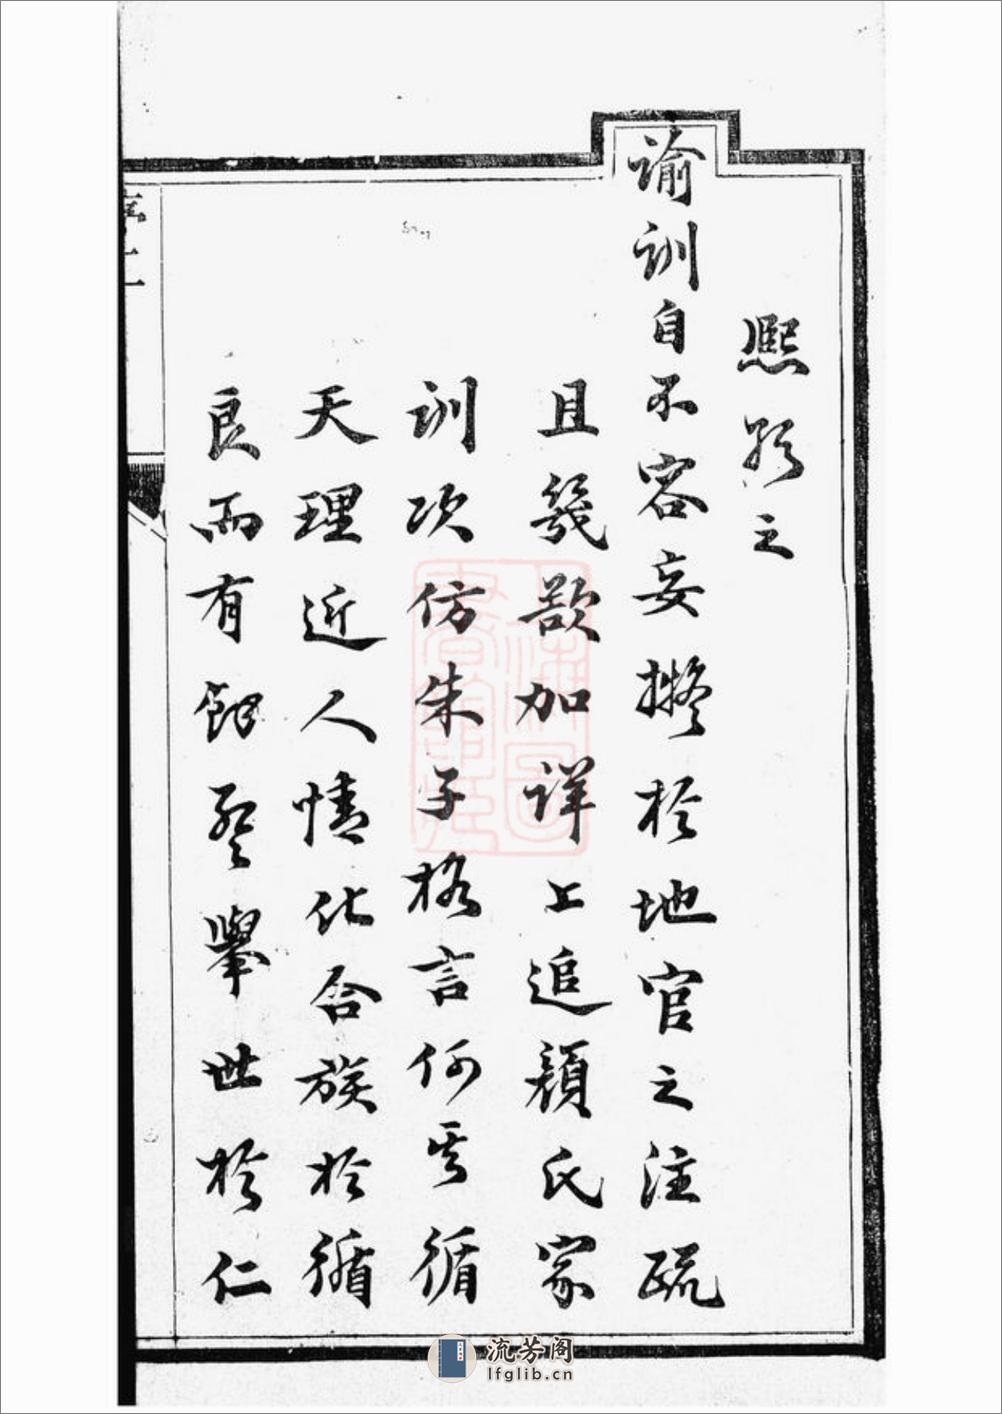 熙之
諭訓自不容妄擬於地官之注疏
且款加詳上追顏氏家
訓次仿朱子格言何其循
天理近人情化合族於循
良而有舉世於仁
序
流芳阁
lfglib.cn